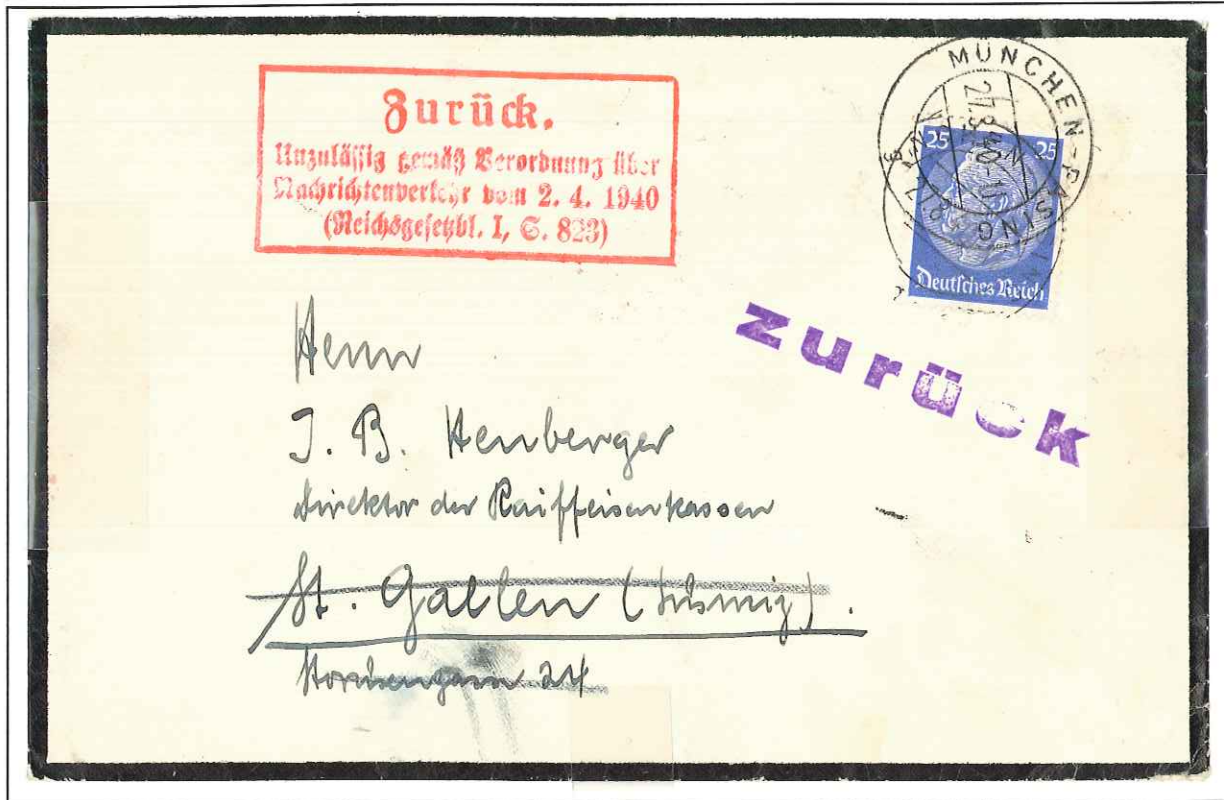 Zurück.
Unzulässig gemäß Verordnung über
Nachrichtenverkehr vom 2. 4. 1940
(Reichsgesetzbl. I, S. 823)
MÜNCHEN-PASING
25 25
Deutsches Reich
zurück
Herrn
J. B. Heuberger
Direktor der Raiffeisenkassen
St. Gallen (Schweiz).
24